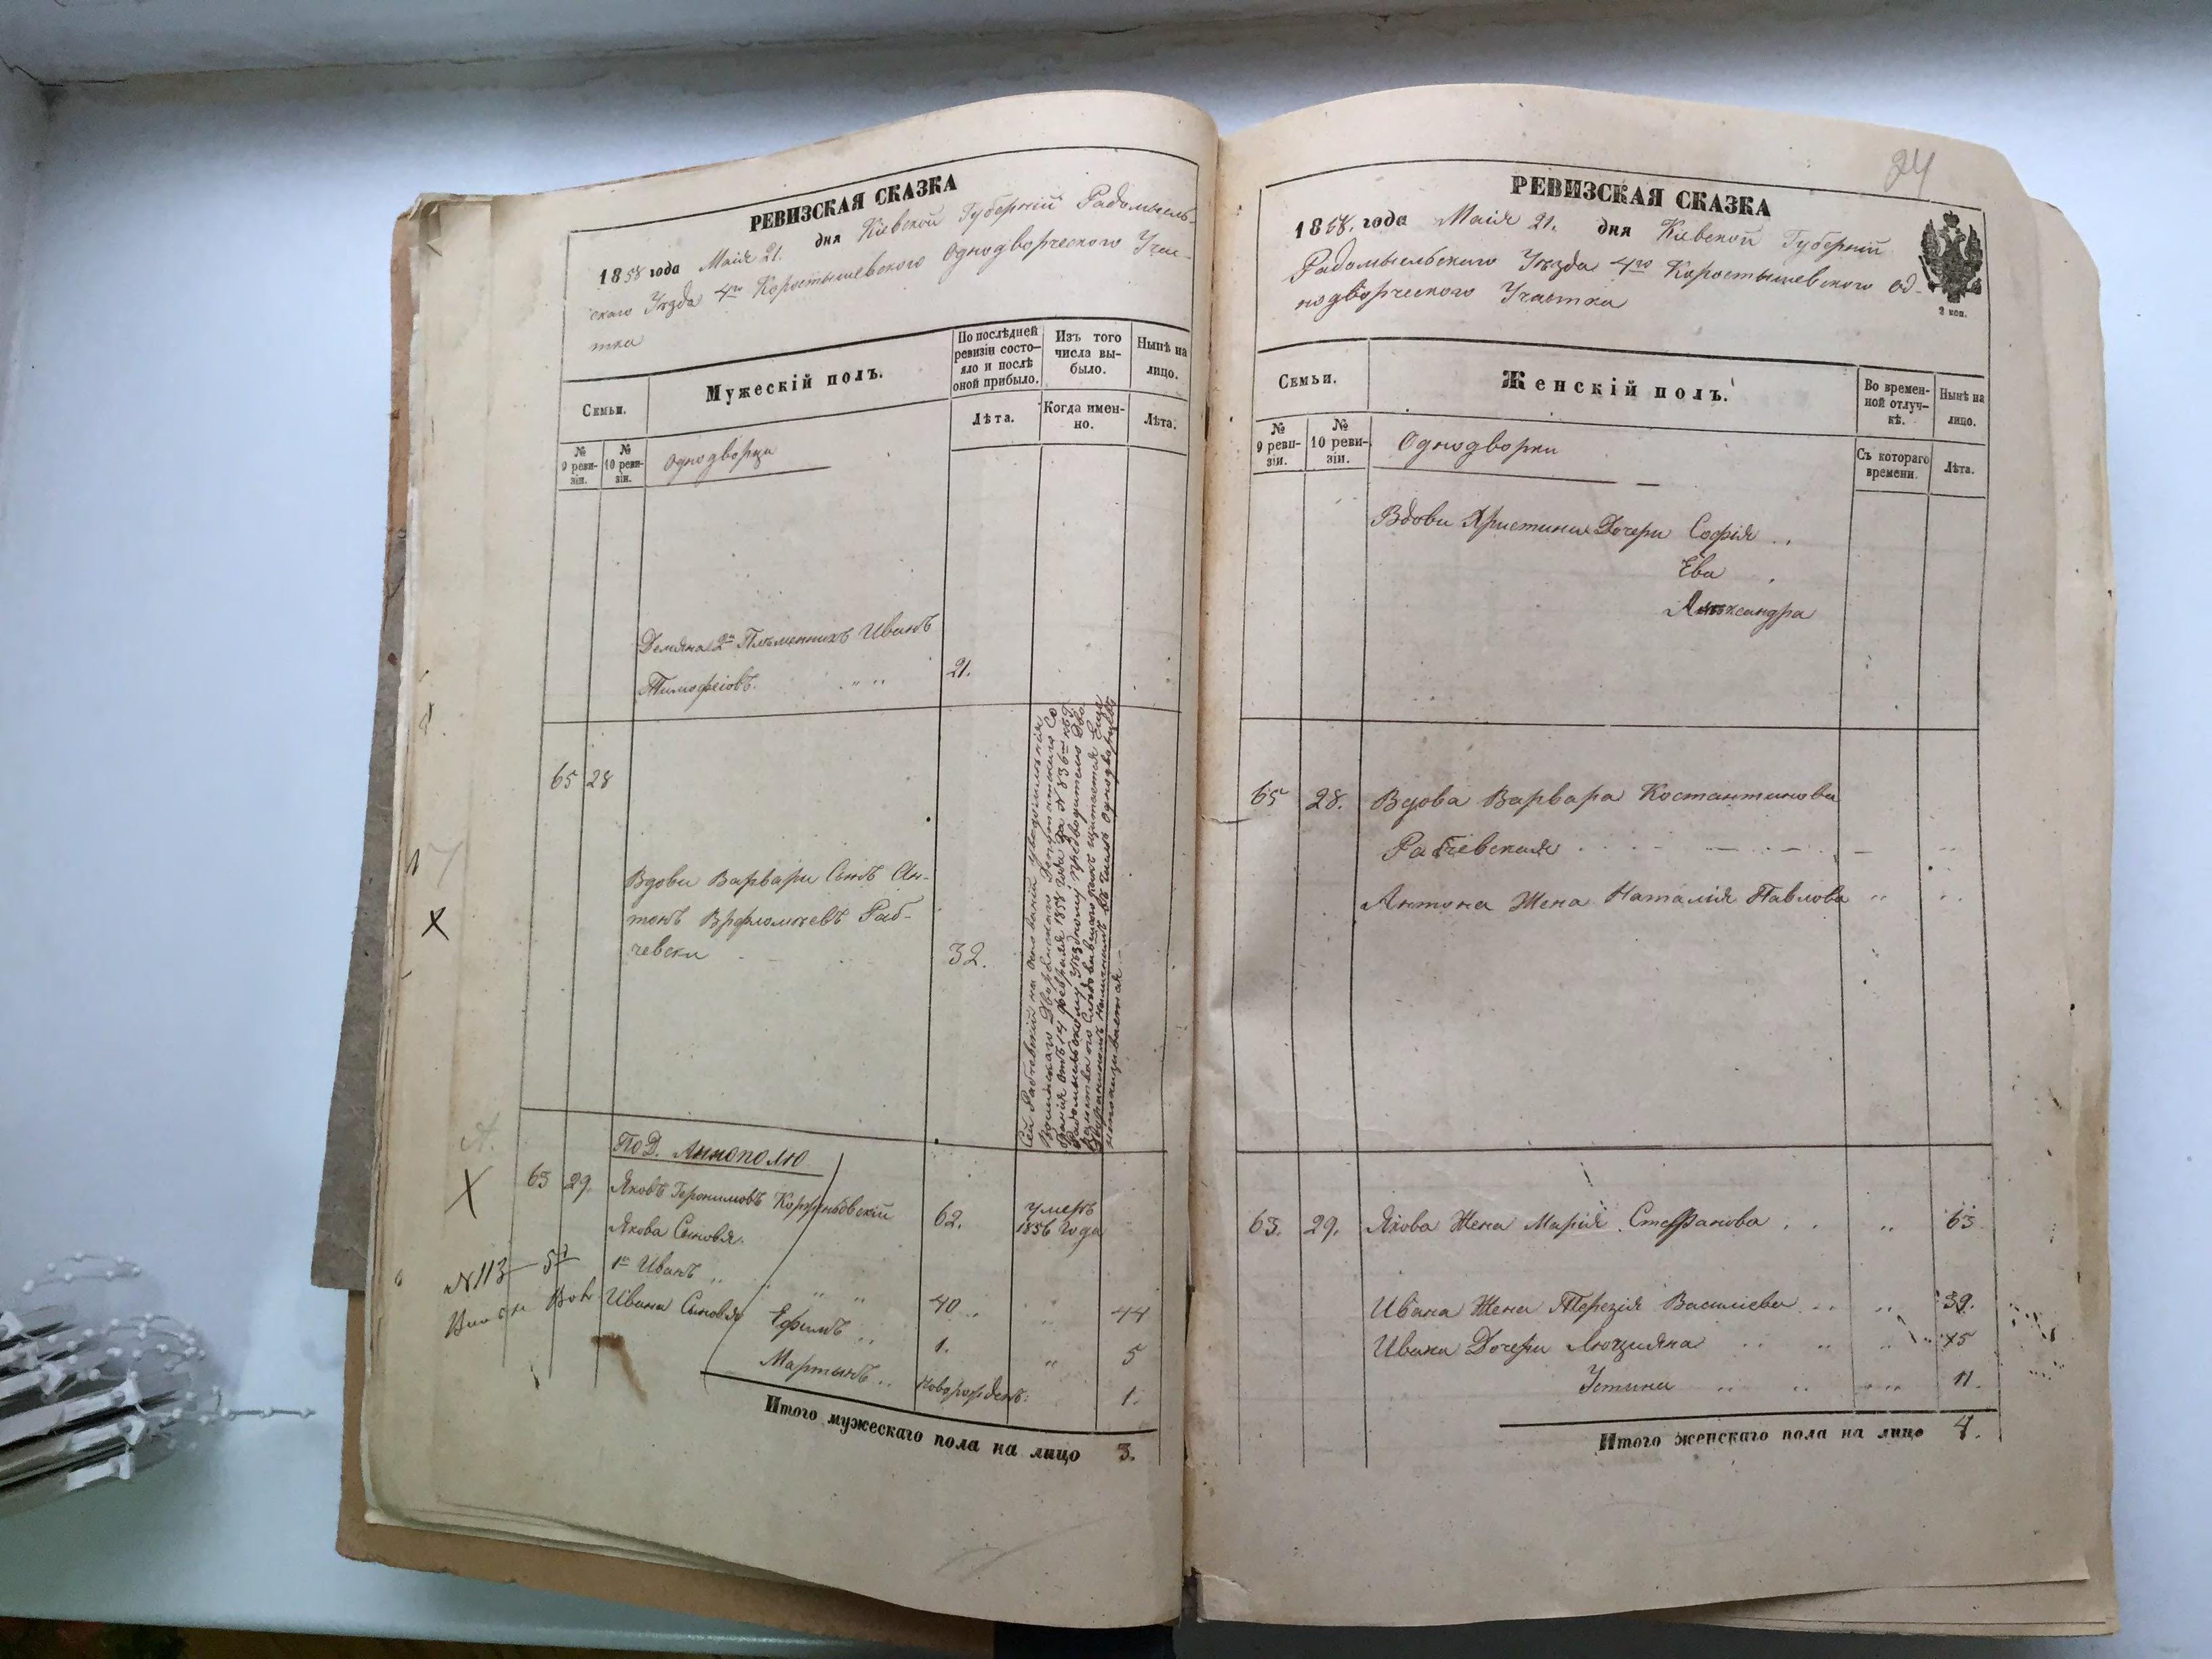 РЕВИЗСКАЯ СКАЗКА
1858 года Маія 21. дня Кіевской Губерніи Радомысль-
скаго Уѣзда 4го Коростышевского Однодворческого Учас-
тка
Семьи.
Мужескій полъ.
По послѣдней
ревизіи состо-
яло и послѣ
оной прибыло.
Изъ того
числа вы-
было.
Нынѣ на
лицо.
№
9 реви-
зіи.
№
10 реви-
зіи.
Лѣта.
Когда имен-
но.
Лѣта.
Однодворци
Демяна 2й Племенникъ Иванъ
Тимофеіовъ. 21.
65 28
Вдови Варвари Сынъ Ан-
тонъ Врфломеевъ Раб-
чевски 32.
Сей Рабчевскій на основаніи увѣдомленія
Волынскаго Дворянского Депутатского Со
бранія отъ 14 февраля 1858 года за № 836
Радомысльскому Уѣздному предводителю Дво
По Д. Аннополю
63 29. Яковъ Геронимовъ Корженьовскій 62. умеръ
1856 Года
Якова Сыновя.
№ 113
1й Иванъ 40 44
Ивана Сыновя Ефимъ 1. 5
Мартынъ новорожден: 1.
Итого мужескаго пола на лицо 3.
24
РЕВИЗСКАЯ СКАЗКА
1858. года Маія 21. дня Кіевской Губерніи
Радомысльского Уѣзда 4го Коростышевского Од-
нодворческого Участка
2 коп.
Семьи.
Женскій полъ.
Во времен-
ной отлуч-
кѣ.
Нынѣ на
лицо.
№
9 реви-
зіи.
№
10 реви-
зіи.
Съ котораго
времени.
Лѣта.
Однодворки
Вдови Христини Дочери Софія
Ева
Александра
65 28. Вдова Варвара Костантинова
Рабчевская
Антона Жена Наталія Павлова
63. 29. Якова Жена Марія Стефанова 63
Ивана Жена Терезія Василіева 39.
Ивана Дочери Люцияна 15
Устина 11.
Итого женскаго пола на лицо 4.